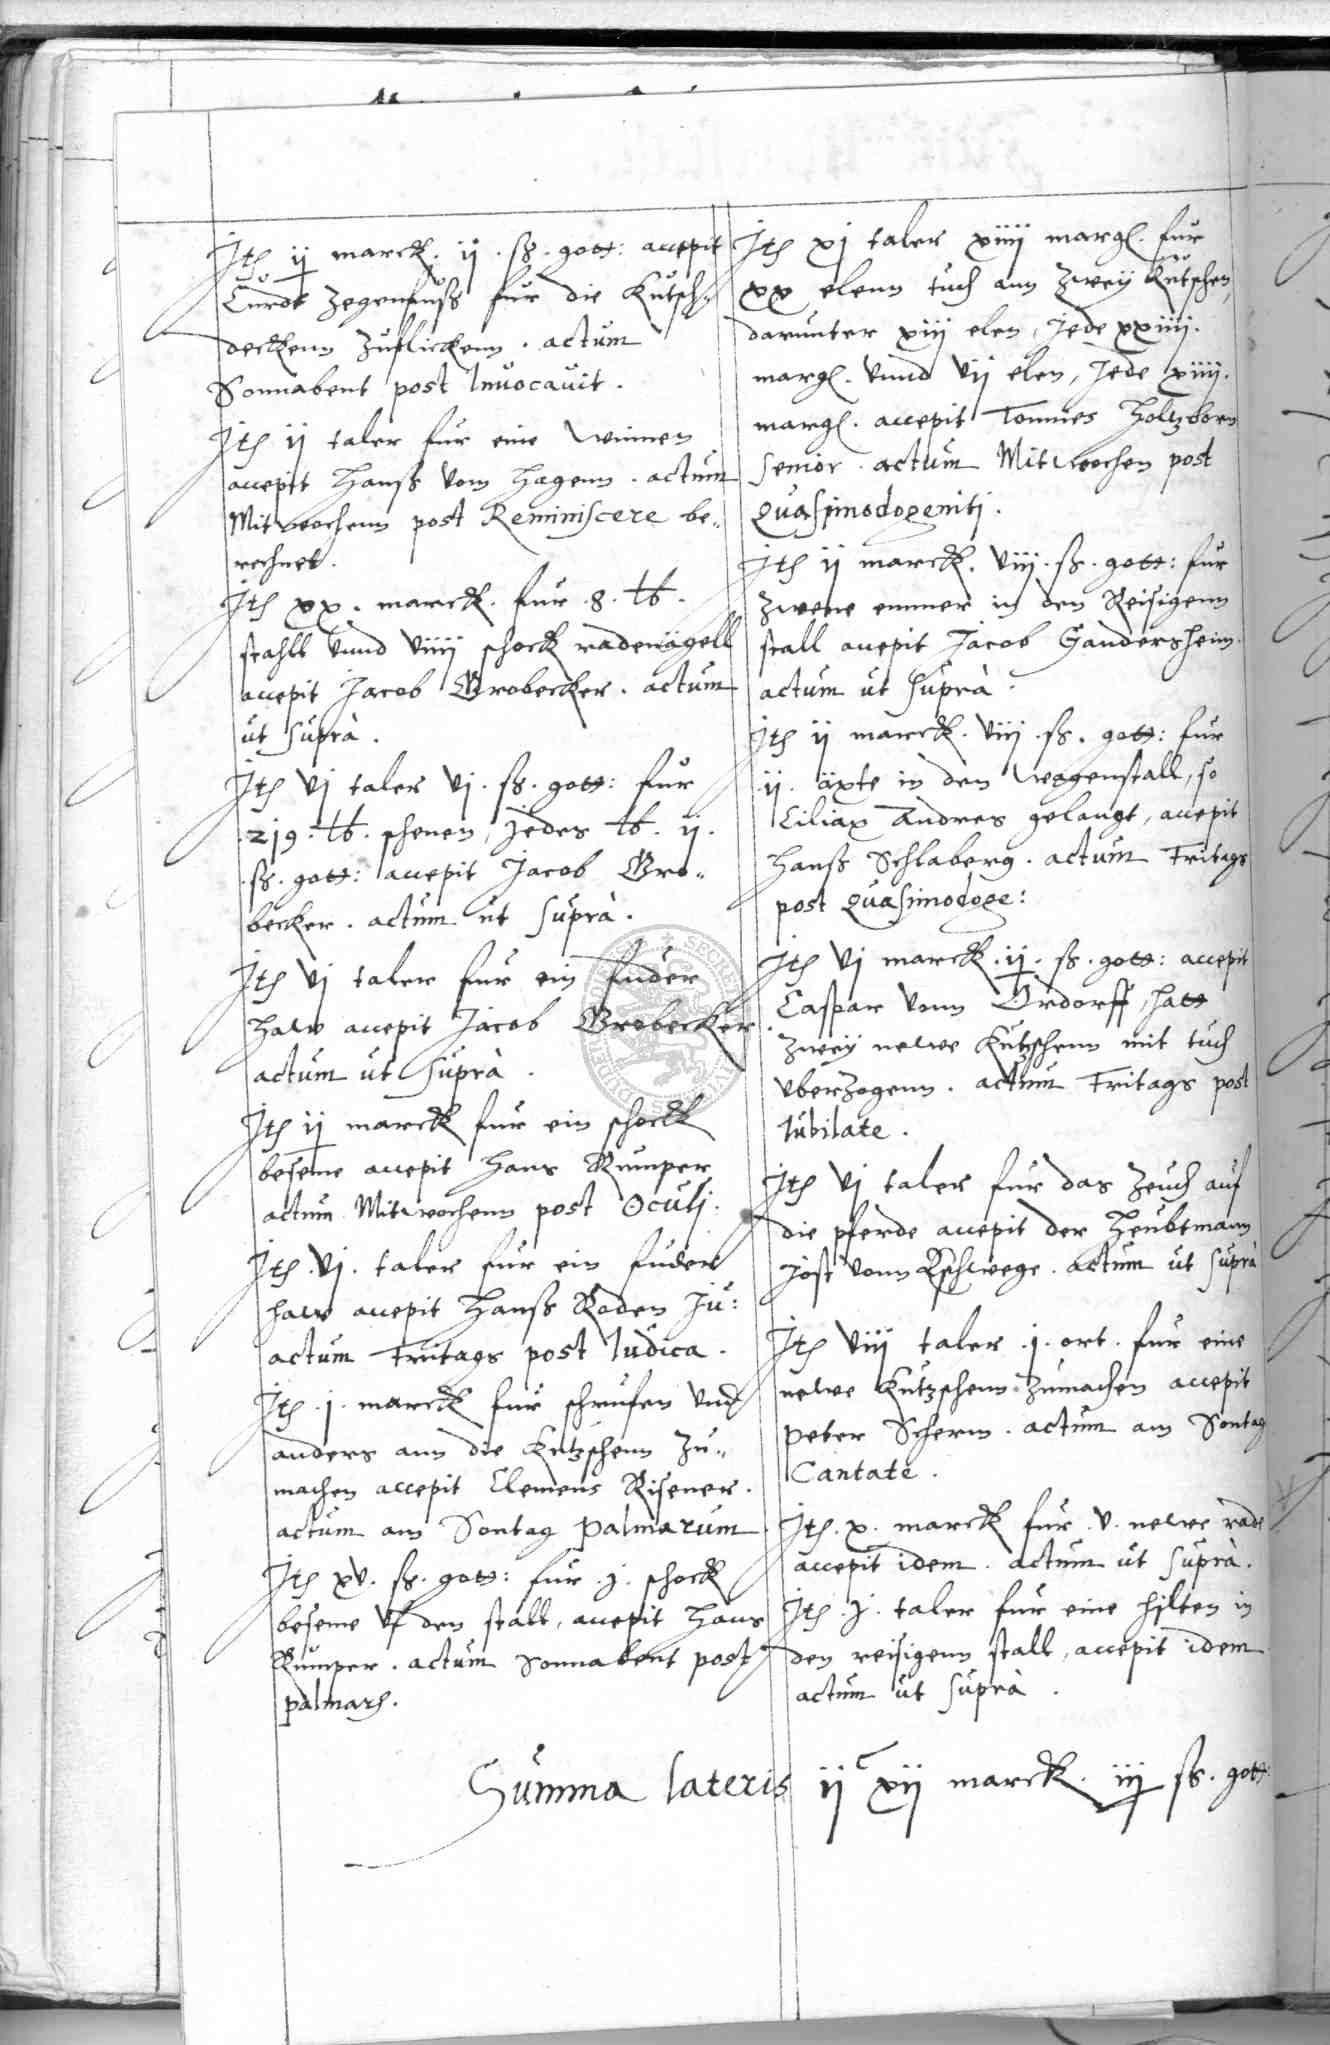 Jtem ij marck. ij. ß. gott: accepit
Curdt Zegenfuß fur die Kutsch„
deckenn zuflickenn. actum
Sonnabent post Invocavit.
Jtem ij taler fur eine winnen
accepit Hanß vom Hagenn. actum
Mitwochenn post Reminiscere be„
rechnet.
Jtem xx. marck. fur .8. lb.
stahll vnnd viiij schock radenägell
accepit Jacob Grobecker. actum
ut suprà.
Jtem vj taler vj. ß. gott: fur
.219. lb. schenen, jedes lb. ij.
.ß. gott: accepit Jacob Gro„
becker. actum ut suprà.
Jtem vj taler fur ein fuder
haw accepit Jacob Grobecker
actum ut suprà.
Jtem ij marck fur ein schock
beseme accepit Hans Rumper
actum Mitwochenn post Oculj.
Jtem .vj. taler fur ein fuder
haw accepit Hanß Roden Ju:
actum Fritags post Iudica.
Jtem .j. marck fur schrufen vnd
anders ann die Kutzschenn zu„
machen accepit Clemens Risener.
actum am Sontag Palmarum
Jtem xv. ß. gott: fur .j. schock
beseme vf den stall, accepit Hans
Rumper. actum Sonnabent post
palmarum.
Jtem xj taler xiiij margl. fur
xx elenn tuch ann zweÿ Kutschen,
darunter xiij elen, Jede xxiiij.
margl. vnnd vij elen, Jede xiiij.
margl. accepit Tonnies Holtzborn
senior. actum Mitwochen post
Quasimodogeniti.
Jtem ij marck. viij. ß. gott: fur
zwene emmer in den Reisigenn
stall accepit Jacob Gandersheim.
actum ut suprà.
Jtem ij marck. viij. ß. gott: fur
.ij. äxte in den wagenstall, so
Ciliax Andres gelangt, accepit
Hanß Schlaberg. actum Fritags
post Quasimodoge:
Jtem vj marck. ij. ß. gott: accepit
Caspar vonn Ordorff, hatt
zweÿ newe Kutzschenn mit tuch
vberzogenn. actum Fritags post
Iubilate.
Jtem vj taler fur das Zeuch auf
die pferde accepit der Heubtmann
Jost vonn Eschwege. actum ut suprà
Jtem viij taler .j. ort. fur eine
newe Kutzschenn zumachen accepit
Peter Scherm. actum am Sontag
Cantate.
Jtem .x. marck fur .v. newe rade
accepit idem. actum ut suprà.
Jtem .j. taler fur eine hilten in
den reisigenn stall, accepit idem
actum ut suprà.
Summa lateris ij c xij marck. iij ß. gott: